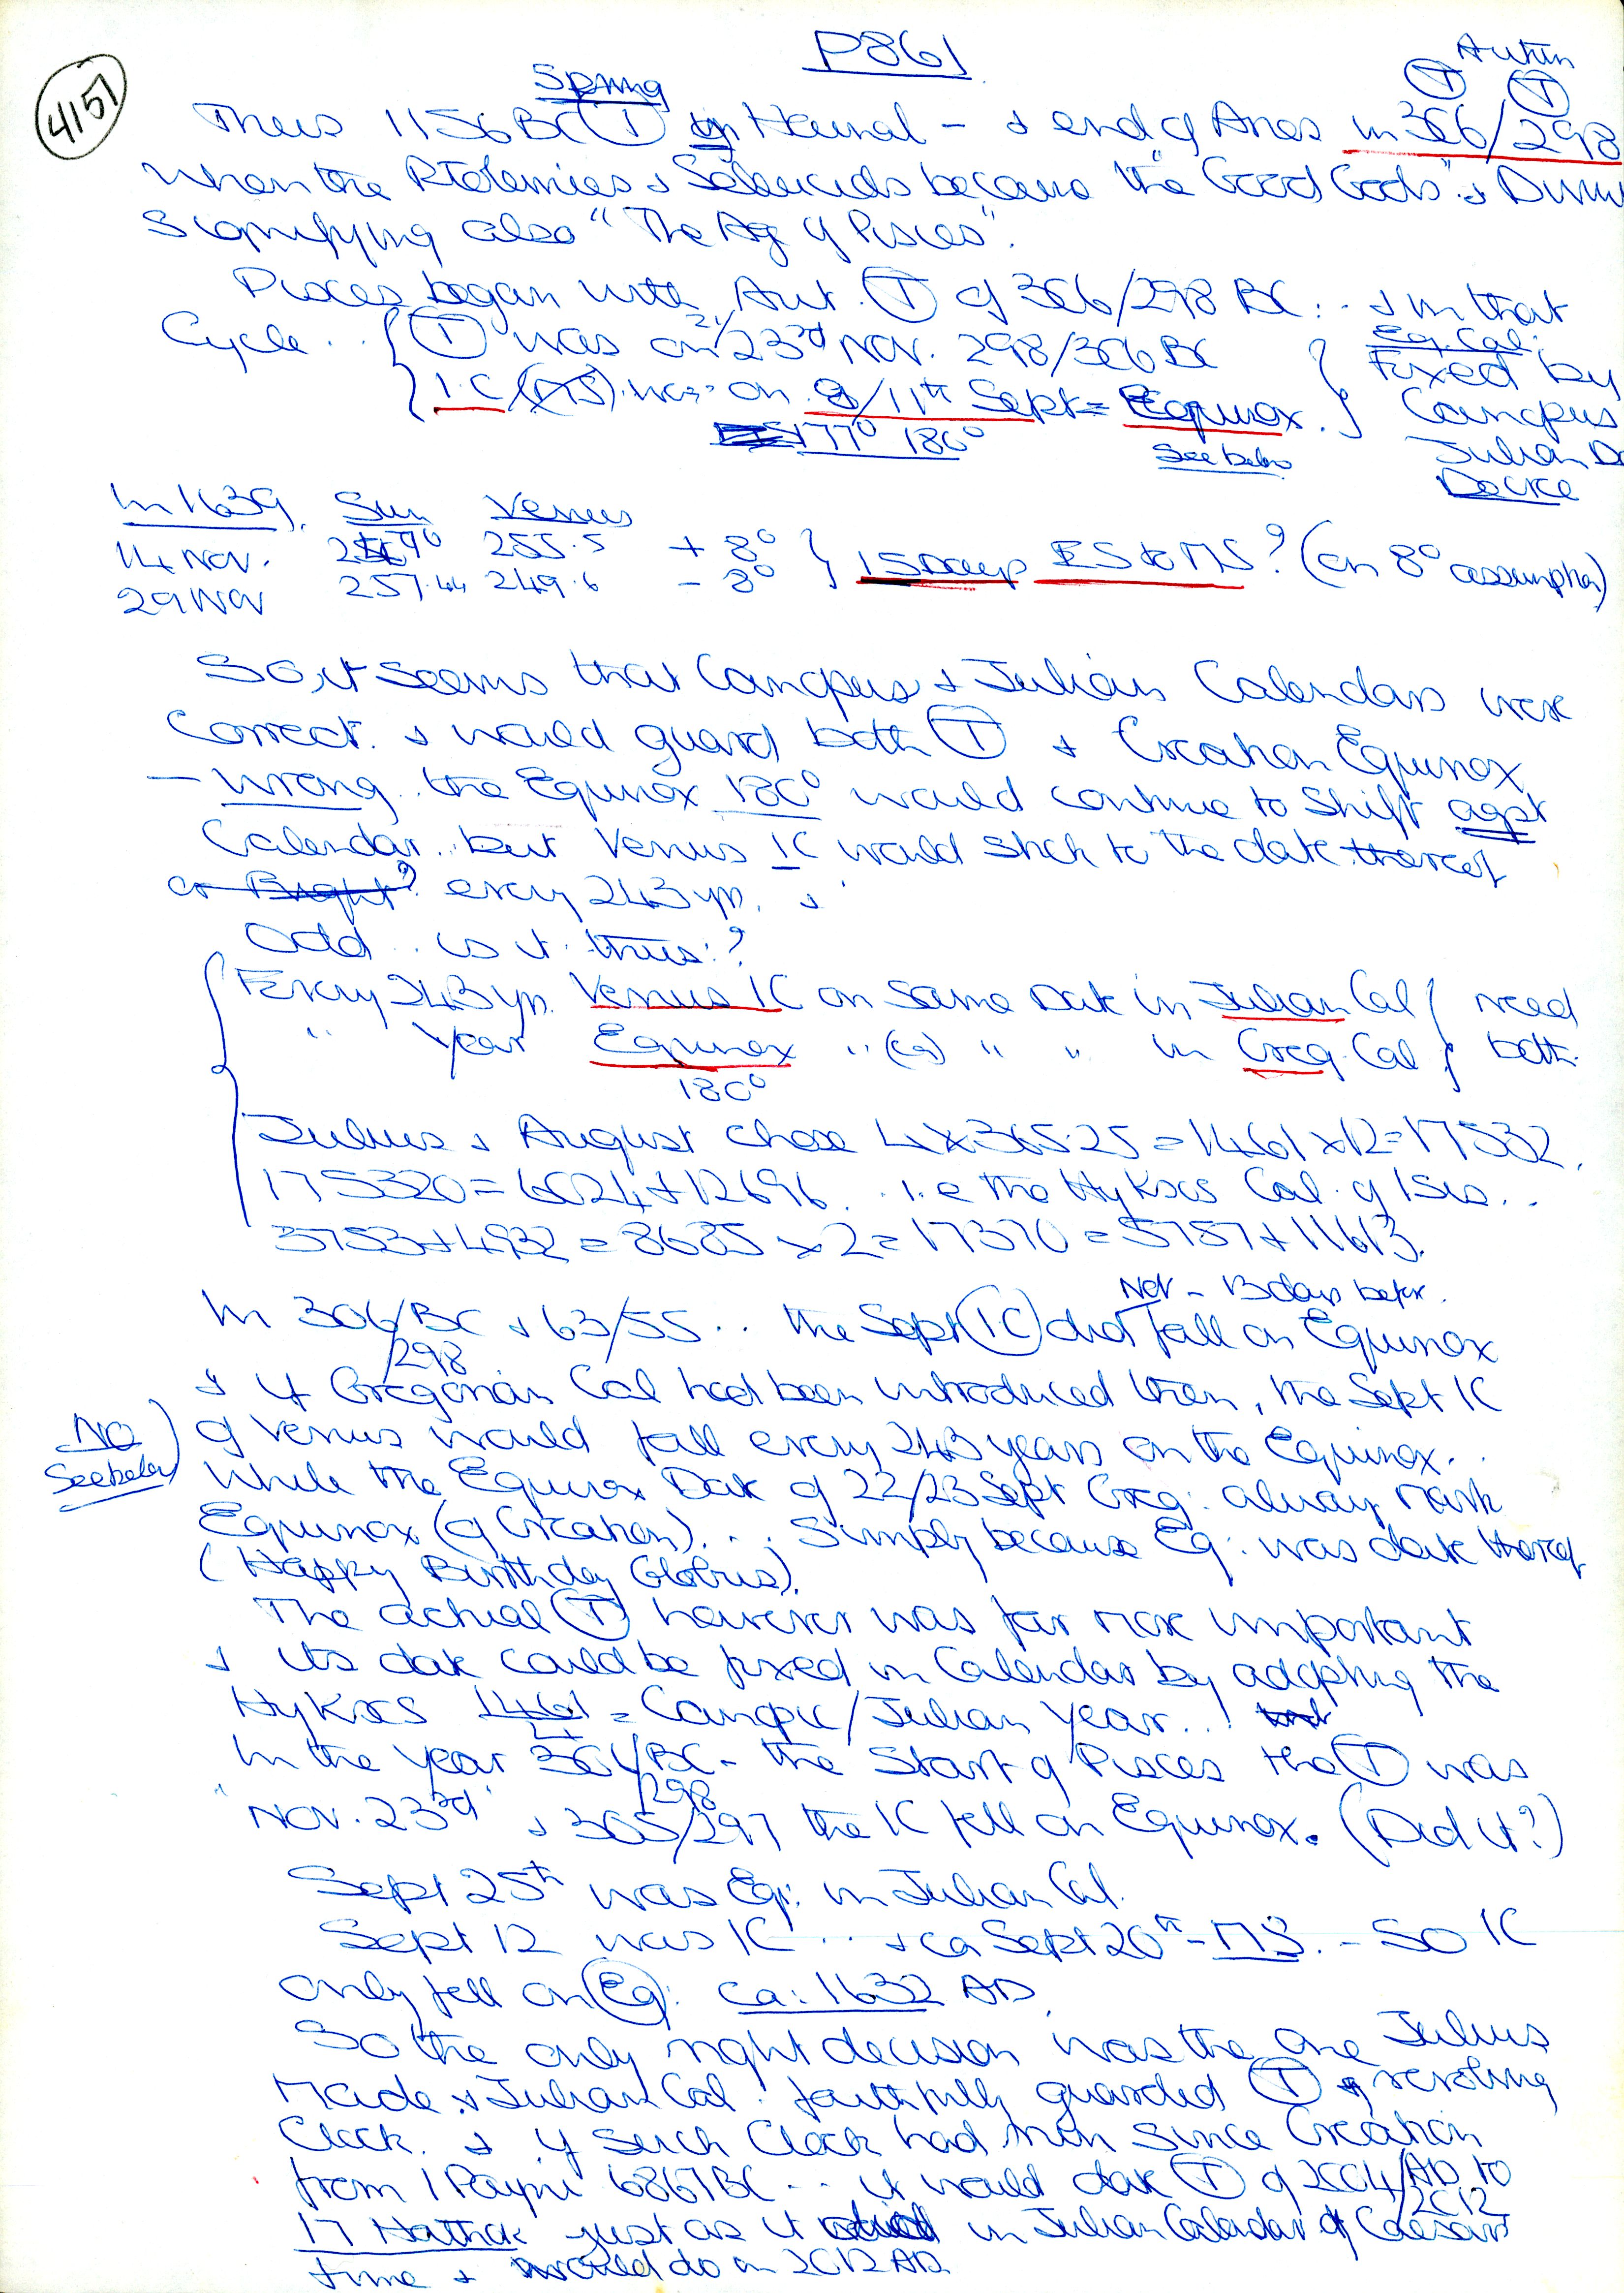 P861
4157
Autum
Spring (T) (T)
Thus 1156 BC (T) in Hournal - & end of Aries in 306/298
when the Ptolemies & Seleucids became the "Good Gods" &
Signifying also "The Age of Pisces".
Pisces began with Aut. (T) of 306/298 BC .. & in that
Cycle .. { (T) was on 21/23rd Nov. 298/306 BC } Eq. Cal. Fixed by
I.C (MS) was on 8/11th Sept = Equinox. } Canopus
177° 180° See below Julian
Decree
In 1639. Sun Venus
14 Nov. 255.5 + 8° } 15 Days ES to MS? (on 8° assumption)
29 Nov 257.44 249.6 - 8°
So, it seems that Canopus & Julian Calendars were
correct. & would guard both (T) & Creation Equinox
- wrong. the Equinox 180° would continue to shift agst
Calendar .. but Venus IC would stick to the date thereof
or Bright? every 243 yrs. &
Odd .. is it thus:?
{ Every 243 yrs. Venus IC on same Date in Julian Cal { need
" Year Equinox " (ca) " " in Greg. Cal } both.
180°
Julius & August chose 4 x 365.25 = 1461 x 12 = 17532.
175320 = 6024 + 12696 .. i.e the Hyksos Cal. of Isis ..
3753 + 4932 = 8685 x 2 = 17370 = 5757 + 11613.
Not - 13 days before.
In 306/BC & 63/55 .. the Sept (IC) did fall on Equinox
/298
& if Gregorian Cal had been introduced then, the Sept IC
No
See below ) of Venus would fall every 243 years on the Equinox ..
While the Equinox Date of 22/23 Sept Greg: always mark
Equinox (of Creation) ... Simply because Eq: was date thereof
(Happy Birthday Globus).
The actual (T) however was far more important
& its date could be fixed in Calendar by adopting the
Hyksos 1461/4 = Canopic/Julian Year..!
In the year 306/BC - the Start of Pisces the (T) was
/298
"Nov. 23rd" & 305/297 the IC fell on Equinox. (Did it?)
Sept 25th was Eq: in Julian Cal.
Sept 12 was IC .. & ca Sept 20th - MS. - So IC
only fell on (Eq): ca: 1632 AD.
So the only right decision was the one Julius
Made & Julian Cal. faithfully guarded (T) of revolving
Clock. & if such Clock had run since Creation
from 1 Payni 6867 BC ... it would date (T) of 2004/AD to
/2012
17 Hathor just as it did in Julian Calendar of Caesar's
time & would do in 2012 AD.